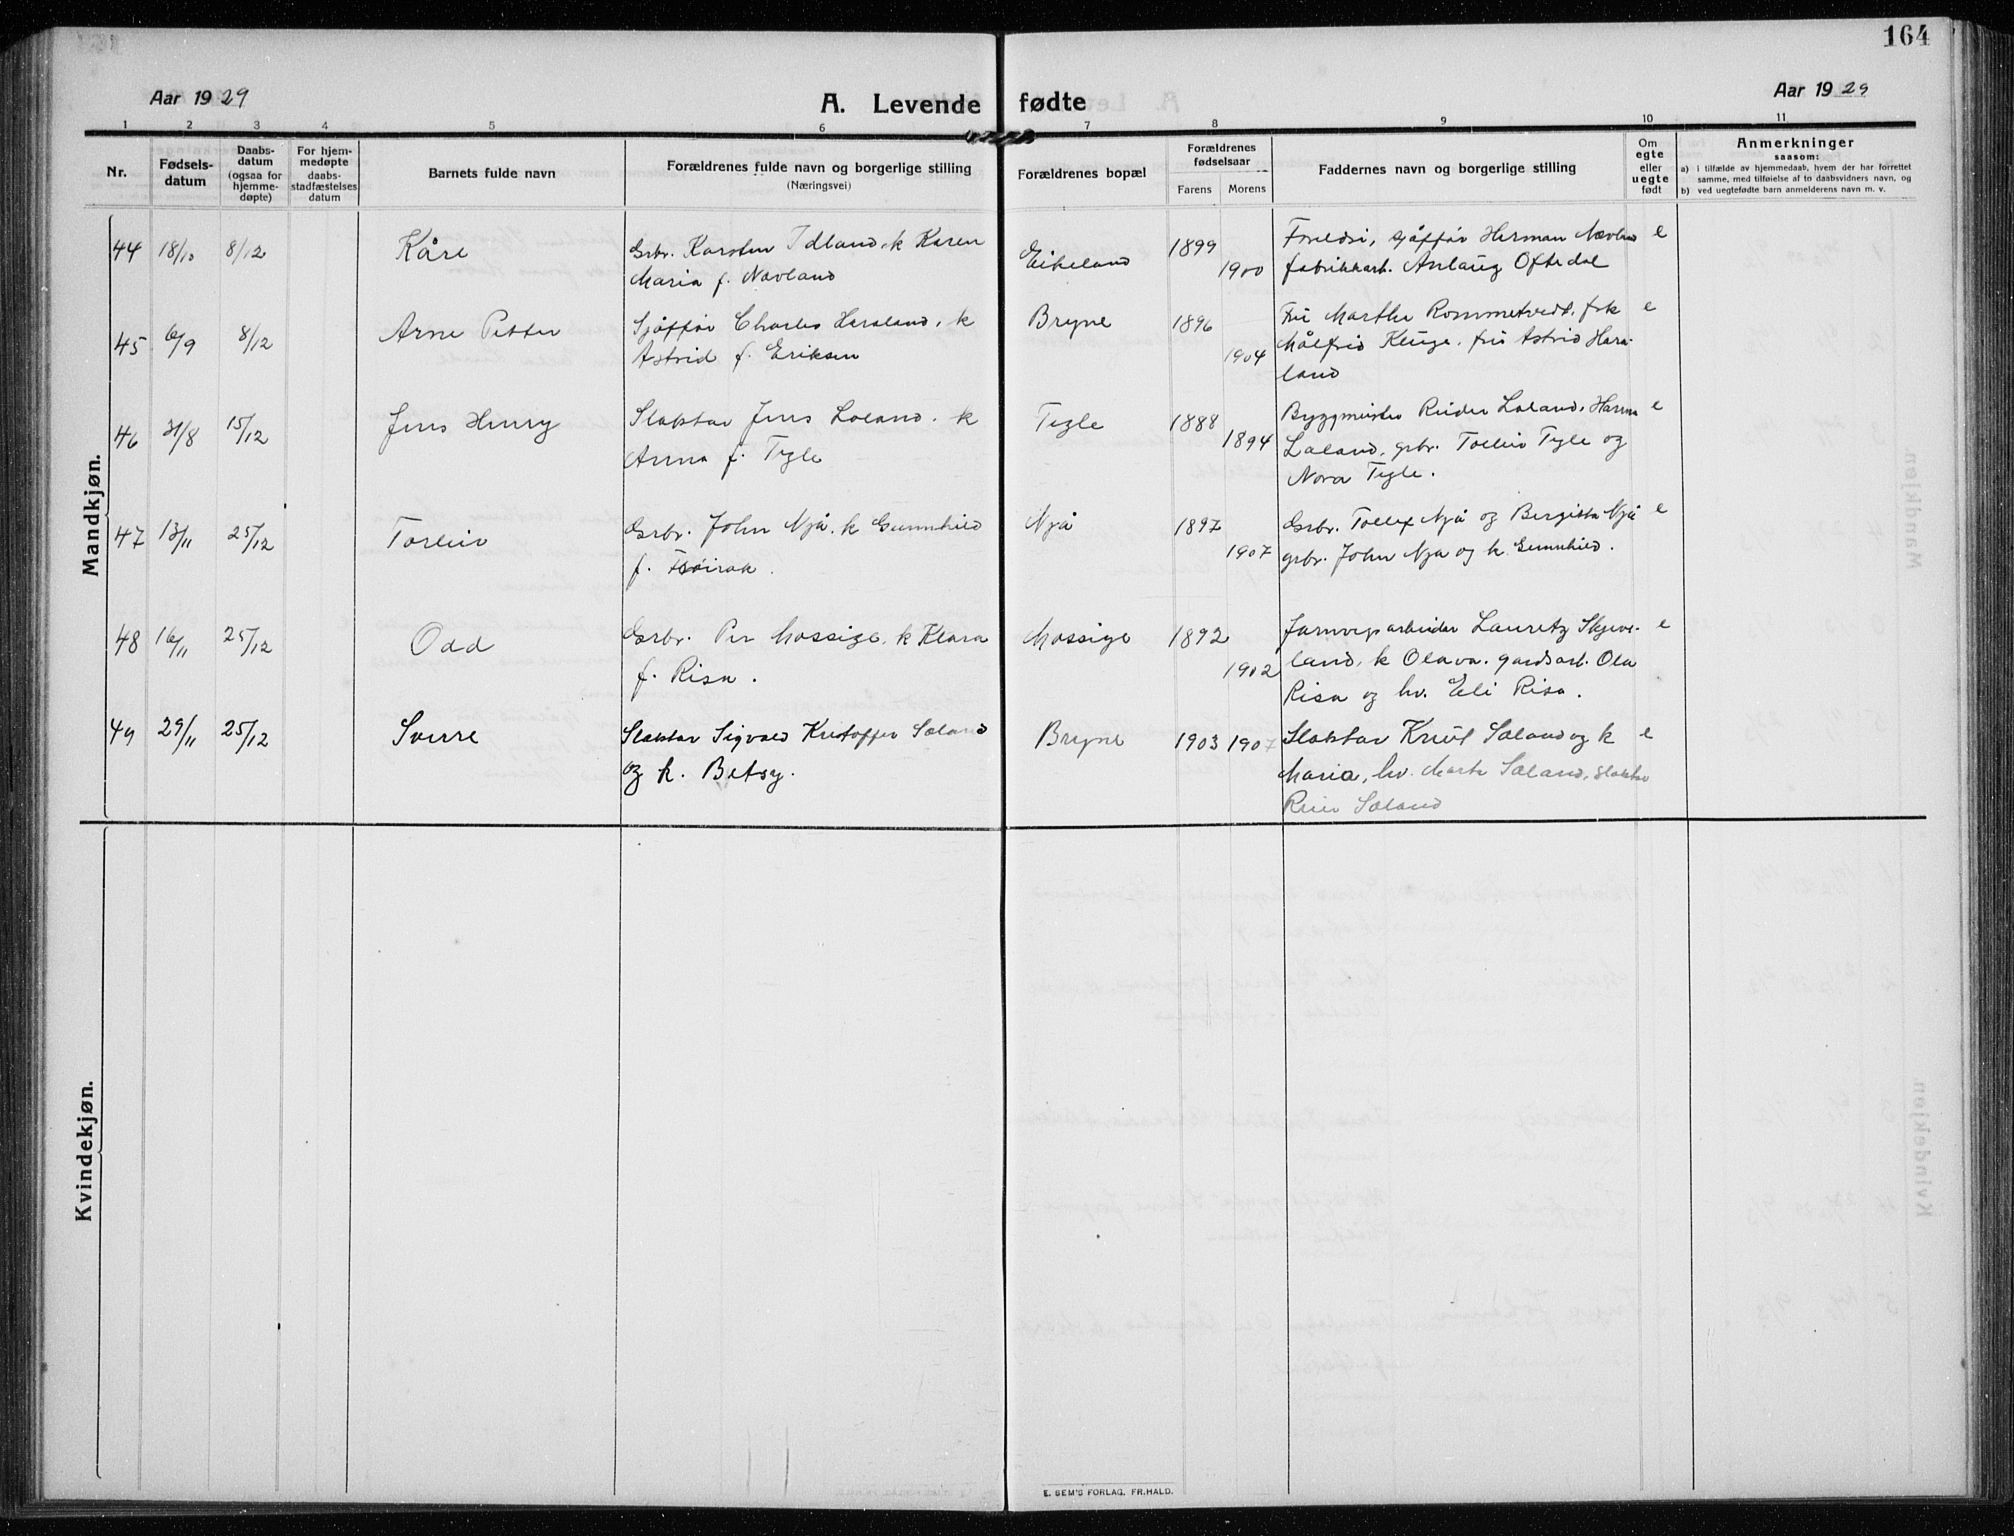 164
Aar 1929
A. Levende fødte
Aar 1929
1 2 3 4 5 6 7 8 9 10 11
Nr.
Fødsels-
datum
Daabs-
datum
(ogsaa for
hjemme-
døpte)
For hjem-
medøpte
daabs-
stadfæstelses
datum
Barnets fulde navn
Forældrenes fulde navn og borgerlige stilling
(Næringsvei)
Forældrenes bopæl
Forældrenes
fødselsaar
Farens Morens
Faddernes navn og borgerlige stilling
Om
egte
eller
uegte
født
Anmerkninger
saasom:
a) i tilfælde av hjemmedaab, hvem der har forrettet
samme, med tilføielse af to daabsvidners navn, og
b) ved uegtefødte barn anmelderens navn m. v.
Mandkjøn.
44 18/10 8/12 Kåre
Grbr. Karsten Idland, k Karen
Maria f. Nævland
Eikeland 1899 1900
Foreldri, sjåffør Herman Nævland e
fabrikkarb. Anlaug Oftedal
45 6/9 8/12 Arne Petter
Sjåffør Charles Haraland, k
Astrid f. Eriksen
Bryne 1896 1904
Fru Marthe Rommetvedt, frk e
Målfrid Kluge, fru Astrid Hara-
land
46 31/8 15/12 Jens Henry
Slaktar Jens Laland, k
Anna f. Tegle
Tegle 1888 1894
Byggmeister Reidar Laland, Hanna e
Laland, grbr. Tolleiv Tegle og
Nora Tegle.
47 13/11 25/12 Torleiv
Grbr. John Njå, k Gunnhild
f. Frøirak.
Njå 1897 1907
Grbr. Tollef Njå og Bergitta Njå e
grbr. John Njå og k Gunnhild.
48 16/11 25/12 Odd
Grbr. Per Mossige, k Klara
f. Risa.
Mossige 1892 1902
Jarnvegsarbeidar Lauretz Skjeve- e
land, k Olava, gardsarb. Ola
Risa og hv. Eli Risa.
49 29/11 25/12 Sverre
Slaktar Sigvald Kristoffer Sæland
og k. Betsy.
Bryne 1903 1907
Slaktar Knut Sæland og k e
Maria, hv. Marta Sæland, slaktar
Sæland
Kvindekjøn.
E. SEM'S FORLAG. FR.HALD.